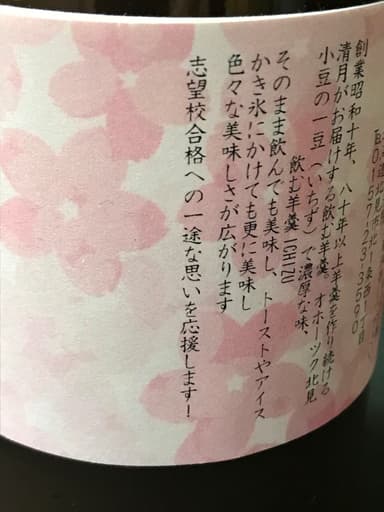 北見市北一条西一丁目
0157-23-3590
創業昭和十年、八十年以上羊羹を作り続ける
清月がお届けする飲む羊羹。オホーツク北見
小豆の一豆(いちず)で濃厚な味、
飲む羊羹 ICHIZU
そのまま飲んでも美味し、トーストやアイス
かき氷にかけても更に美味し
色々な美味しさが広がります
志望校合格への一途な思いを応援します!